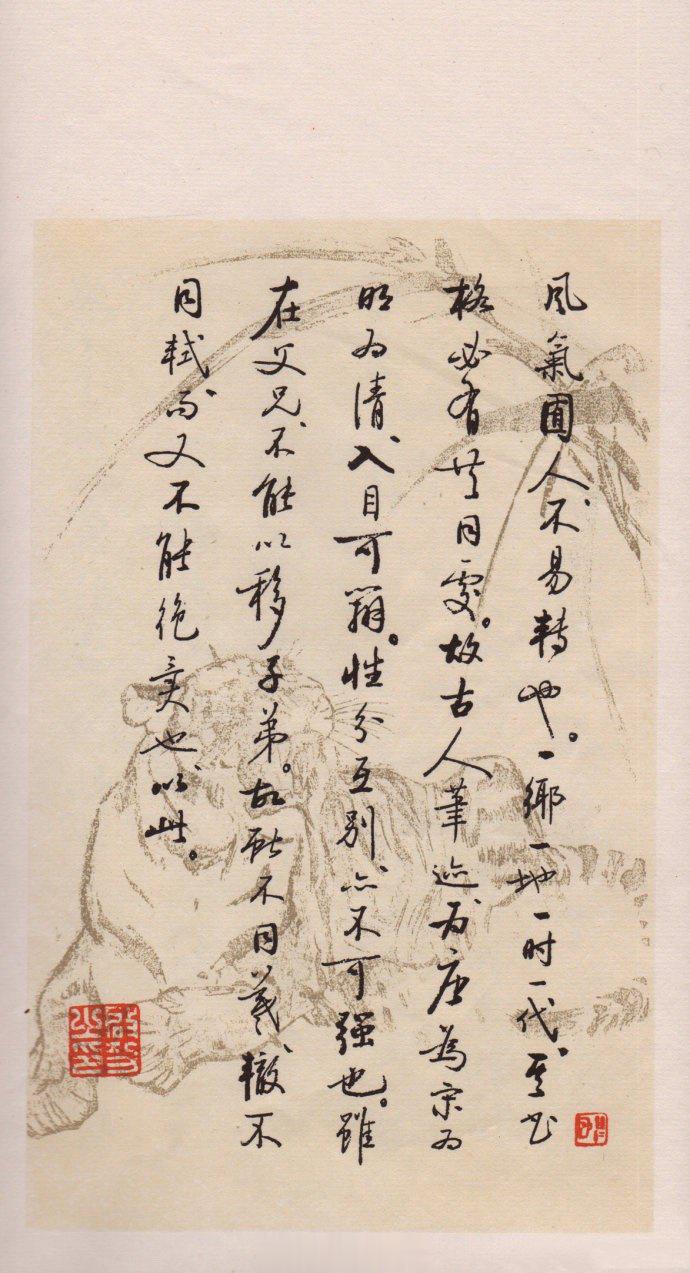 風氣囿人、不易轉也。一鄉一地一时一代、其书
格必有其同處。故古人筆迹、为唐為宋为
明为清、入目可辨。性分互别、亦不可强也。雖
在父兄、不能以移子弟。故献不同羲、轍不
同軾、而又不能绝異也以此。